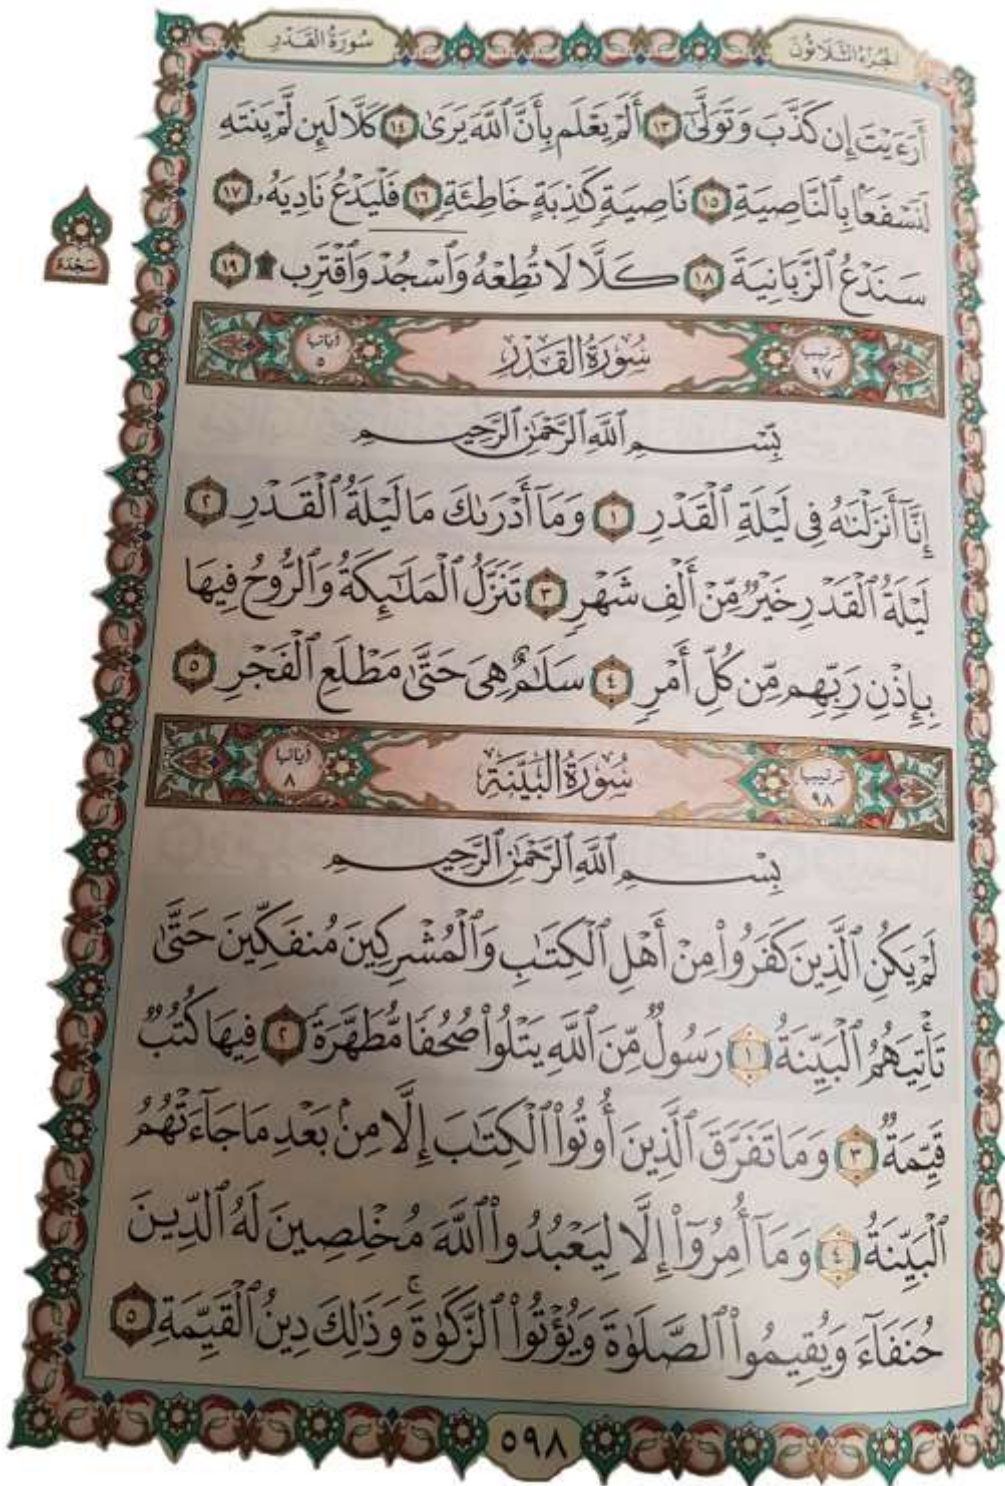 الجُزْءُ الثَّلَاثُونَ
سُورَةُ القَدْرِ
أَرَءَيْتَ إِن كَذَّبَ وَتَوَلَّىٰٓ ١٣ أَلَمْ يَعْلَم بِأَنَّ ٱللَّهَ يَرَىٰ ١٤ كَلَّا لَئِن لَّمْ يَنتَهِ
لَنَسْفَعًۢا بِٱلنَّاصِيَةِ ١٥ نَاصِيَةٍ كَٰذِبَةٍ خَاطِئَةٍ ١٦ فَلْيَدْعُ نَادِيَهُۥ ١٧
سَنَدْعُ ٱلزَّبَانِيَةَ ١٨ كَلَّا لَا تُطِعْهُ وَٱسْجُدْ وَٱقْتَرِب ۩ ١٩
سَجْدَة
ترتيبها ٩٧
سُورَةُ القَدْرِ
آياتها ٥
بِسْمِ ٱللَّهِ ٱلرَّحْمَٰنِ ٱلرَّحِيمِ
إِنَّآ أَنزَلْنَٰهُ فِى لَيْلَةِ ٱلْقَدْرِ ١ وَمَآ أَدْرَىٰكَ مَا لَيْلَةُ ٱلْقَدْرِ ٢
لَيْلَةُ ٱلْقَدْرِ خَيْرٌ مِّنْ أَلْفِ شَهْرٍ ٣ تَنَزَّلُ ٱلْمَلَٰٓئِكَةُ وَٱلرُّوحُ فِيهَا
بِإِذْنِ رَبِّهِم مِّن كُلِّ أَمْرٍ ٤ سَلَٰمٌ هِىَ حَتَّىٰ مَطْلَعِ ٱلْفَجْرِ ٥
ترتيبها ٩٨
سُورَةُ البَيِّنَةِ
آياتها ٨
بِسْمِ ٱللَّهِ ٱلرَّحْمَٰنِ ٱلرَّحِيمِ
لَمْ يَكُنِ ٱلَّذِينَ كَفَرُوا۟ مِنْ أَهْلِ ٱلْكِتَٰبِ وَٱلْمُشْرِكِينَ مُنفَكِّينَ حَتَّىٰ
تَأْتِيَهُمُ ٱلْبَيِّنَةُ ١ رَسُولٌ مِّنَ ٱللَّهِ يَتْلُوا۟ صُحُفًا مُّطَهَّرَةً ٢ فِيهَا كُتُبٌ
قَيِّمَةٌ ٣ وَمَا تَفَرَّقَ ٱلَّذِينَ أُوتُوا۟ ٱلْكِتَٰبَ إِلَّا مِنۢ بَعْدِ مَا جَآءَتْهُمُ
ٱلْبَيِّنَةُ ٤ وَمَآ أُمِرُوٓا۟ إِلَّا لِيَعْبُدُوا۟ ٱللَّهَ مُخْلِصِينَ لَهُ ٱلدِّينَ
حُنَفَآءَ وَيُقِيمُوا۟ ٱلصَّلَوٰةَ وَيُؤْتُوا۟ ٱلزَّكَوٰةَ ۚ وَذَٰلِكَ دِينُ ٱلْقَيِّمَةِ ٥
٥٩٨